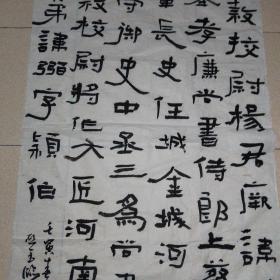 隸校尉楊君厥諱
舉孝廉尚書侍郎上蔡
軍長史任城金城河
守御史中丞三為尚
隸校尉將作大匠河南
弟諱弼字穎伯
壬寅